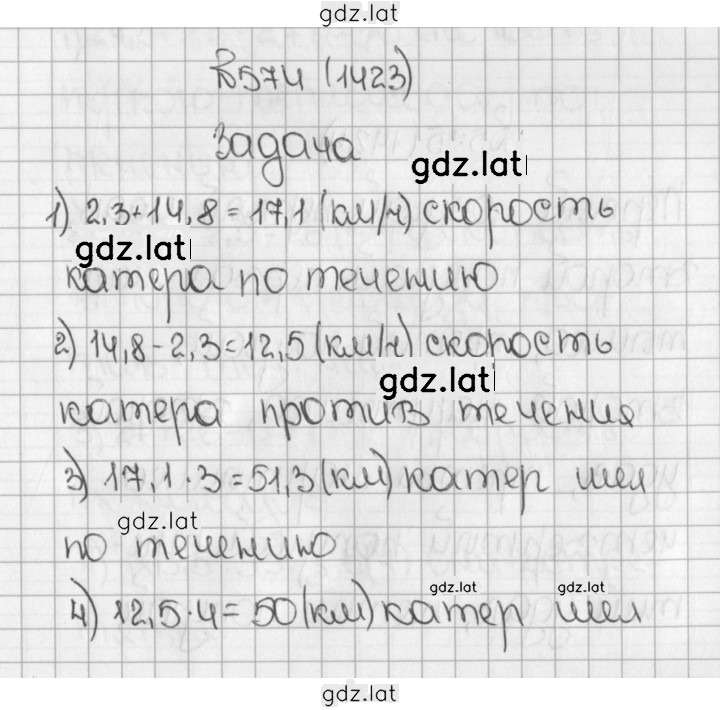 gdz.lat
№574 (1423)
Задача
gdz.lat
1) 2,3+14,8=17,1(км/ч) скорость
gdz.lat
катера по течению
2) 14,8-2,3=12,5(км/ч) скорость
gdz.lat
катера против течения
3) 17,1·3=51,3(км) катер шел
gdz.lat
по течению
gdz.lat gdz.lat
4) 12,5·4=50(км) катер шел
gdz.lat